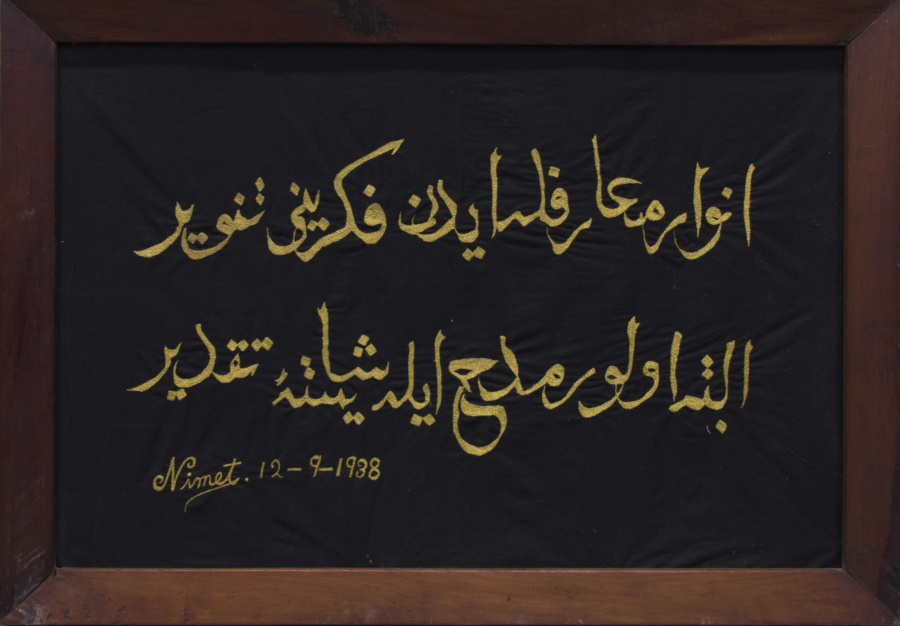 انوار معارفله ایدن فکرینی تنویر
البته اولور مدح ایله شایستهٔ تقدیر
Nimet. 12-9-1938